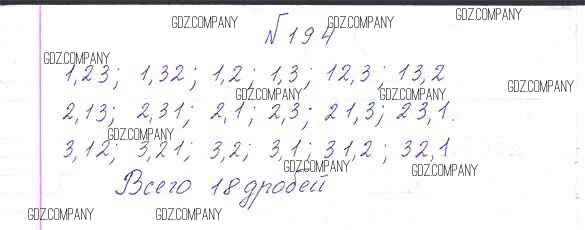 GDZ.COMPANY GDZ.COMPANY GDZ.COMPANY
№194
GDZ.COMPANY
1,23; 1,32; 1,2; 1,3; 12,3; 13,2
GDZ.COMPANY GDZ.COMPANY GDZ.COMPANY
2,13; 2,31; 2,1; 2,3; 21,3; 23,1.
GDZ.COMPANY
3,12; 3,21; 3,2; 3,1; 31,2; 32,1
GDZ.COMPANY GDZ.COMPANY
Всего 18 дробей
GDZ.COMPANY GDZ.COMPANY